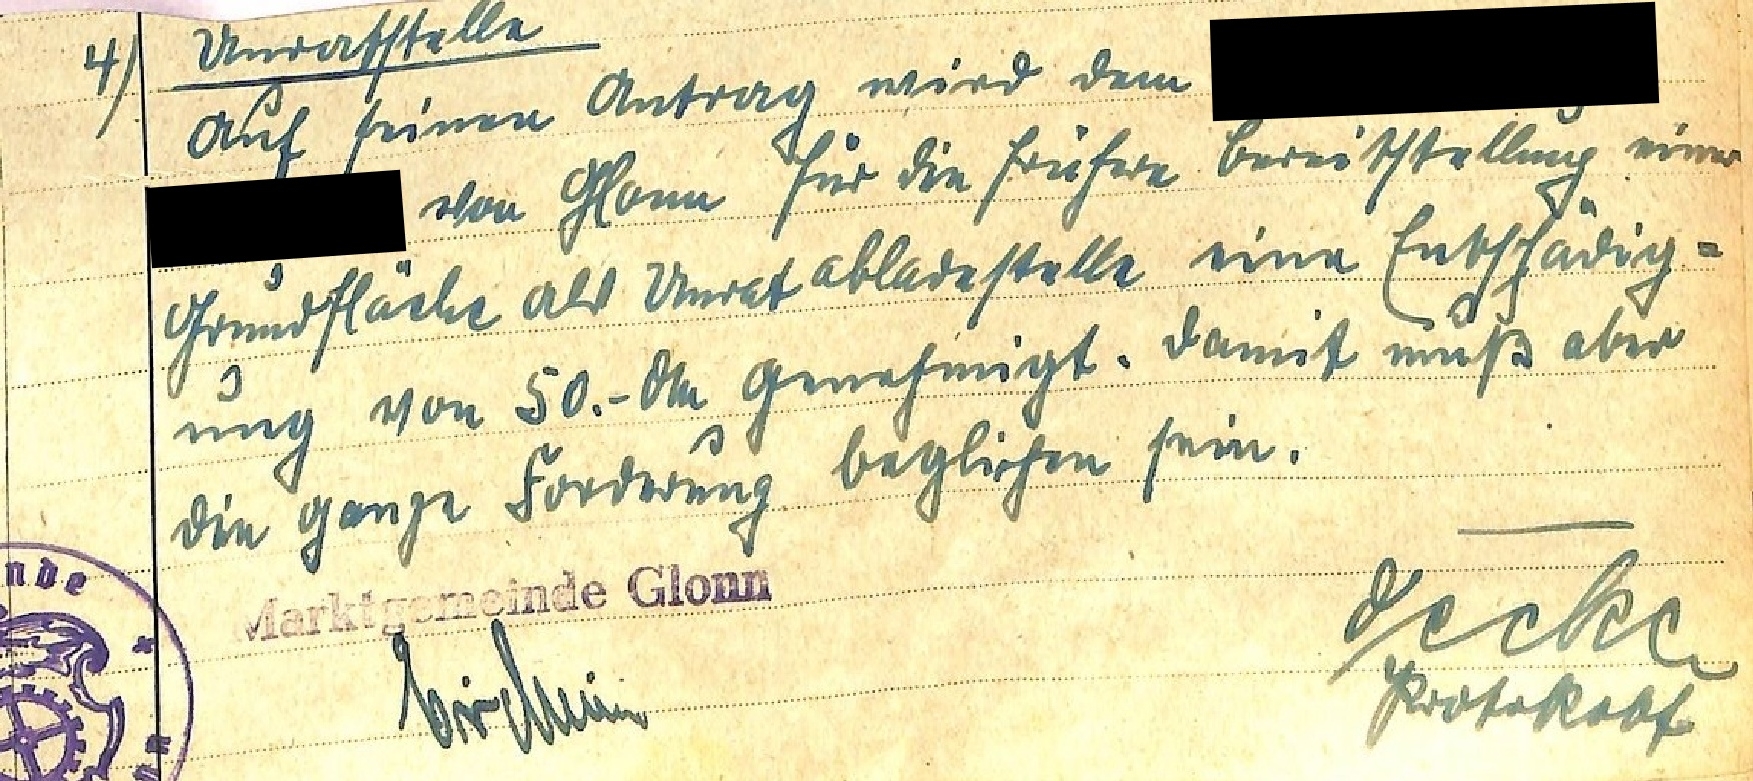 4) Unratstelle
Auf seinen Antrag wird dem
von Glonn für die frühere Bereitstellung einer
Grundfläche als Unratabladestelle eine Entschädig=
ung von 50.- DM genehmigt. Damit muß aber
die ganze Forderung beglichen sein.
Marktgemeinde Glonn
Protokollf.
nde